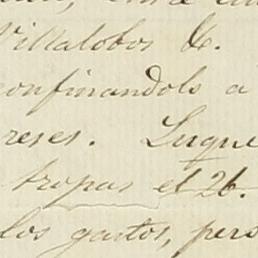 Villalobos &.
onfinandols a
reses. Luque
tropas el 26.
los gastos, pers